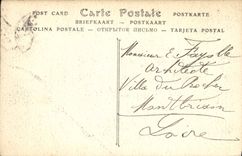 POST CARD Carte Postale POSTKARTE
BRIEFKAART — POSTKAART
CARTOLINA POSTALE — ОТКРЫТОЕ ПИСЬМО — TARJETA POSTAL
Monsieur E. Fayolle
Architecte
Villa du Rocher
Montbrison
Loire